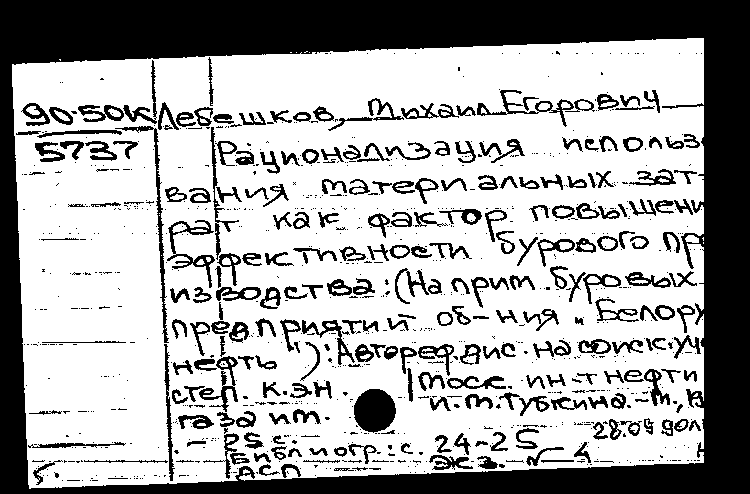 90-50К Лебешков, Михаил Егорович
5737 Рационализация использо
вания материальных зат-
рат как фактор повышени
эффективности бурового про
изводства: (На прим. буровых
предприятий об-ния "Белору
нефть"): Автореф. дис. на соиск. уч
степ. к.э.н. / Моск. ин-т нефти
газа им. И.М. Губкина. - М., 19
. - 25 с.
Библиогр.: с. 24-25 28.04
ДСП Экз. № 4
5.